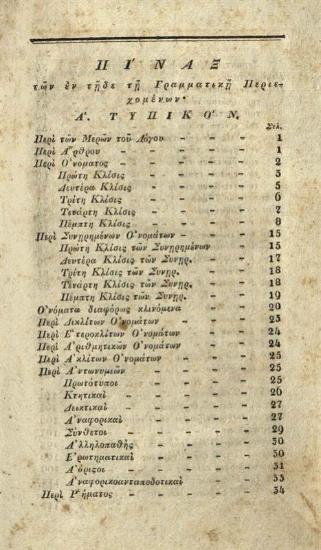 ΠΙ´ΝΑΞ
τῶν ἐν τῇδε τῇ Γραμματικῇ Περιε-
χομένων·
Α΄. ΤΥΠΙΚΟ´Ν.
Σελ.
Περὶ τῶν Μερῶν τοῦ Λόγου - - - - 1
Περὶ Α῎ρθρου - - - - - - 1
Περὶ Ο᾿νόματος - - - - - - 2
Πρώτη Κλίσις - - - - - 3
Δευτέρα Κλίσις - - - - - 5
Τρίτη Κλίσις - - - - - 6
Τετάρτη Κλίσις - - - - - 7
Πέμπτη Κλίσις - - - - - 8
Περὶ Συνῃρημένων Ο᾿νομάτων - - - 15
Πρώτη Κλίσις τῶν Συνῃρημένων - - 15
Δευτέρα Κλίσις τῶν Συνῃρ. - - - 17
Τρίτη Κλίσις τῶν Συνῃρ. - - - 18
Τετάρτη Κλίσις τῶν Συνῃρ. - - - 18
Πέμπτη Κλίσις τῶν Συνῃρ. - - - 19
Ο᾿νόματα διαφόρως κλινόμενα - - - 20
Περὶ Δικλίτων Ο᾿νομάτων - - - - 23
Περὶ Ε῾τεροκλίτων Ο᾿νομάτων - - - 24
Περὶ Α᾿ριθμητικῶν Ο᾿νομάτων - - - 24
Περὶ Α᾿κλίτων Ο᾿νομάτων - - - - 25
Περὶ Α᾿ντωνυμιῶν - - - - - 25
Πρωτότυποι - - - - - 25
Κτητικαὶ - - - - - 26
Δεικτικαὶ - - - - - 27
Α᾿ναφορικαὶ - - - - - 27
Σύνθετοι - - - - - 29
Α᾿λληλοπαθὴς - - - - - 30
Ε᾿ρωτηματικαὶ - - - - - 30
Α᾿όριςοι - - - - - 31
Α᾿ναφορικοανταποδοτικαὶ - - - 33
Περὶ Ρ῾ήματος - - - - - 34